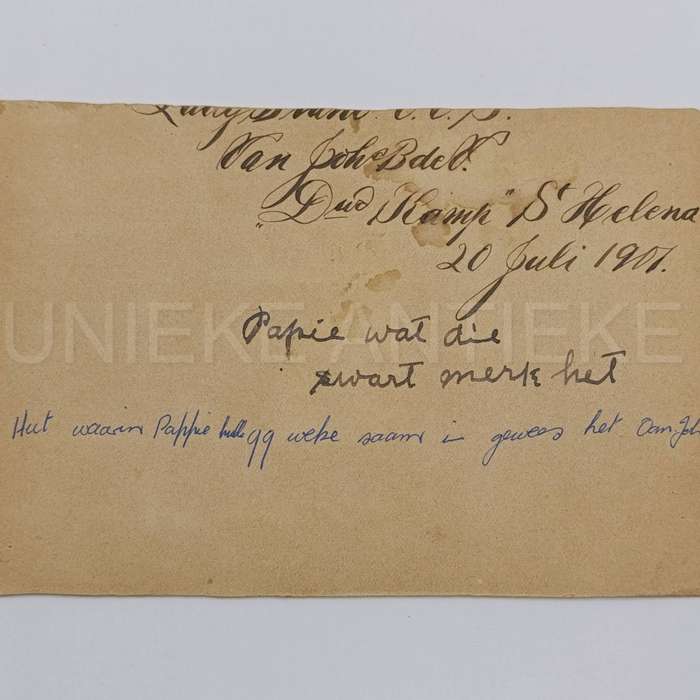 Van Johs B de V.
"Dwd Kamp" St Helena
20 Juli 1901.
UNIEKE ANTIEKE
Papie wat die
swart merk het
Hut waarin Pappie hulle 99 weke saam in gewees het Oom Joh